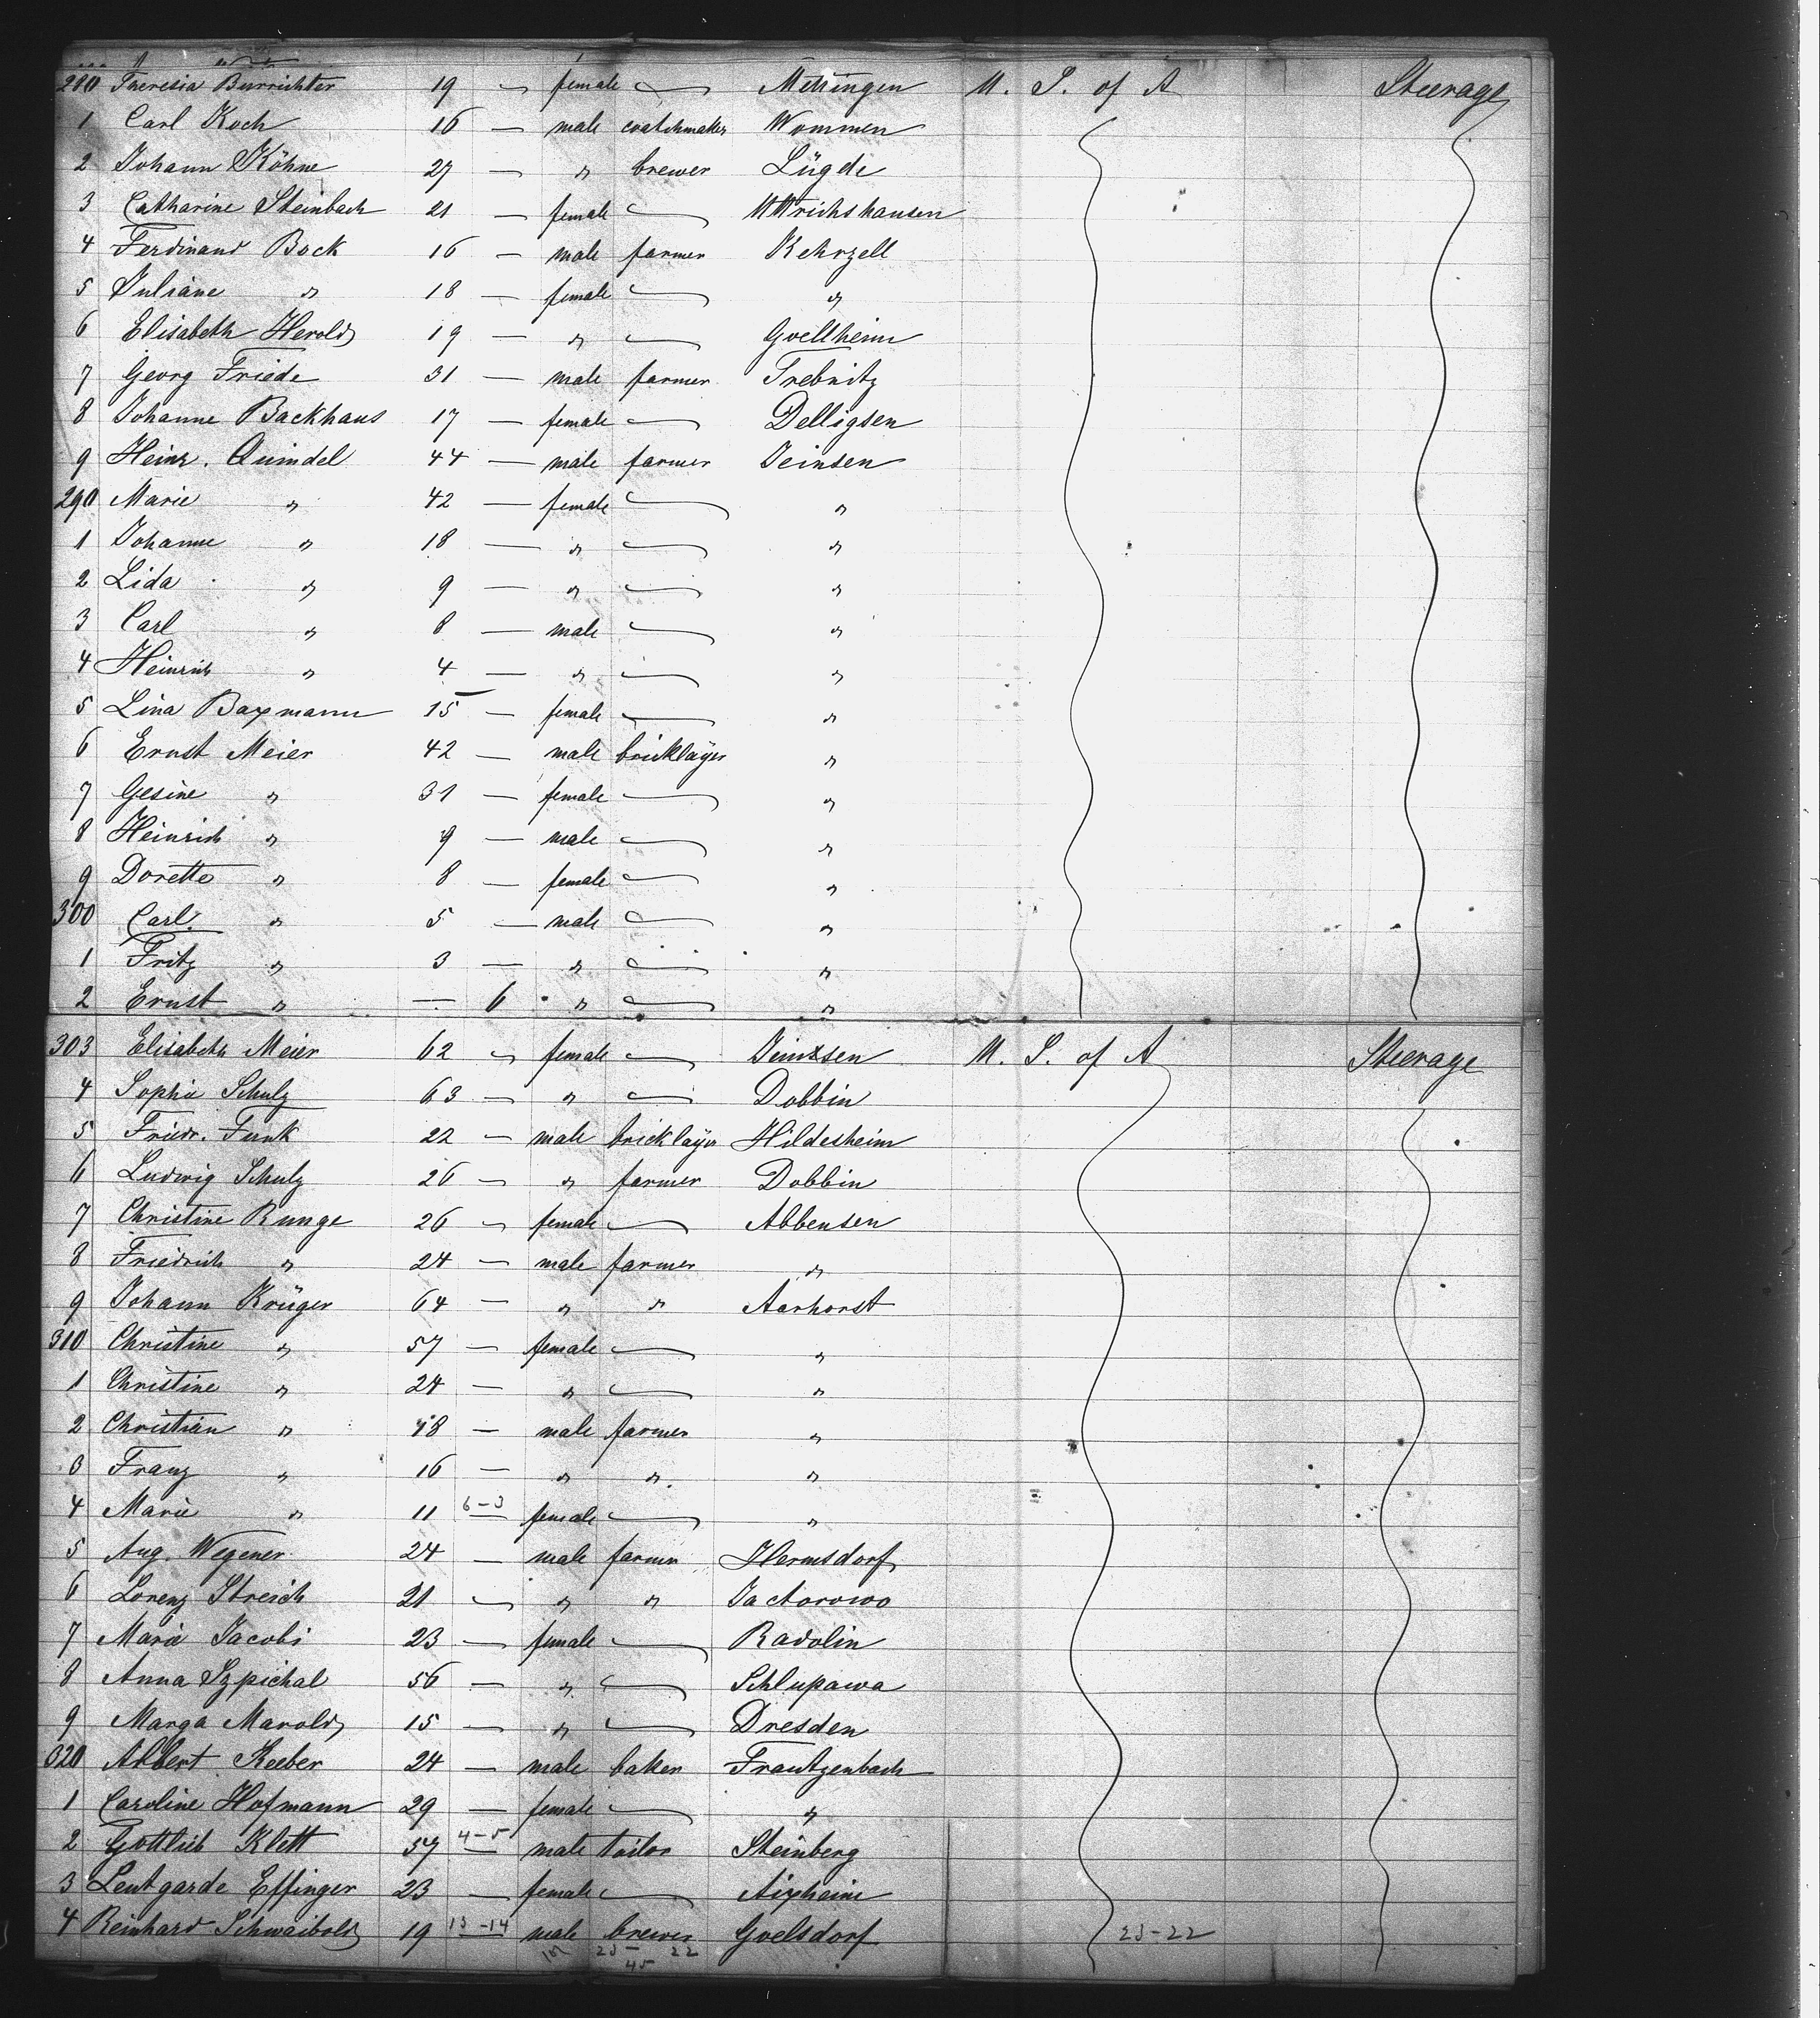 280 Theresia Burrichter 19 — female — Mettingen U. S. of A Steerage
1 Carl Koch 16 — male coatchmaker Wommen
2 Johann Köhne 27 — " brewer Lügde
3 Catharine Steinbach 21 — female — Uttrichshausen
4 Ferdinand Bock 16 — male farmer Kehrzell
5 Juliane " 18 — female — "
6 Elisabeth Herold 19 — " — Goellheim
7 Georg Friede 31 — male farmer Trebnitz
8 Johanne Backhaus 17 — female — Delligsen
9 Heinr. Quindel 44 — male farmer Jeinsen
290 Marie " 42 — female — "
1 Johanne " 18 — " — "
2 Lida " 9 — " — "
3 Carl " 8 — male — "
4 Heinrich " 4 — " — "
5 Lina Baxmann 15 — female — "
6 Ernst Meier 42 — male bricklayer "
7 Gesine " 31 — female — "
8 Heinrich " 9 — male — "
9 Dorette " 8 — female — "
300 Carl " 5 — male — "
1 Fritz " 3 — " — "
2 Ernst " — 6 " — "
303 Elisabeth Meier 62 — female — Jeinsen U. S. of A Steerage
4 Sophie Schulz 63 — " — Dobbin
5 Friedr. Funk 22 — male bricklayer Hildesheim
6 Ludwig Schulz 26 — " farmer Dobbin
7 Christine Runge 26 — female — Abbensen
8 Friedrich " 24 — male farmer "
9 Johann Krüger 64 — " " Aarhorst
310 Christine " 57 — female — "
1 Christine " 24 — " — "
2 Christian " 18 — male farmer "
3 Franz " 16 — " " "
4 Marie " 11 6-3 — female — "
5 Aug. Wegener 24 — male farmer Hermsdorf
6 Lorenz Streich 21 — " " Jactorowo
7 Maria Jacobi 23 — female — Radolin
8 Anna Szpichal 56 — " — Schlupawa
9 Marga Marold 15 — " — Dresden
320 Albert Keeber 24 — male baker Frautzenbach
1 Caroline Hofmann 29 — female — "
2 Gottlieb Klett 57 4-5 — male tailor Steinberg
3 Leutgarde Effinger 23 — female — Aixheim
4 Reinhard Schwaibold 19 13-14 — male brewer Goelsdorf 23-22
23 - 22
45